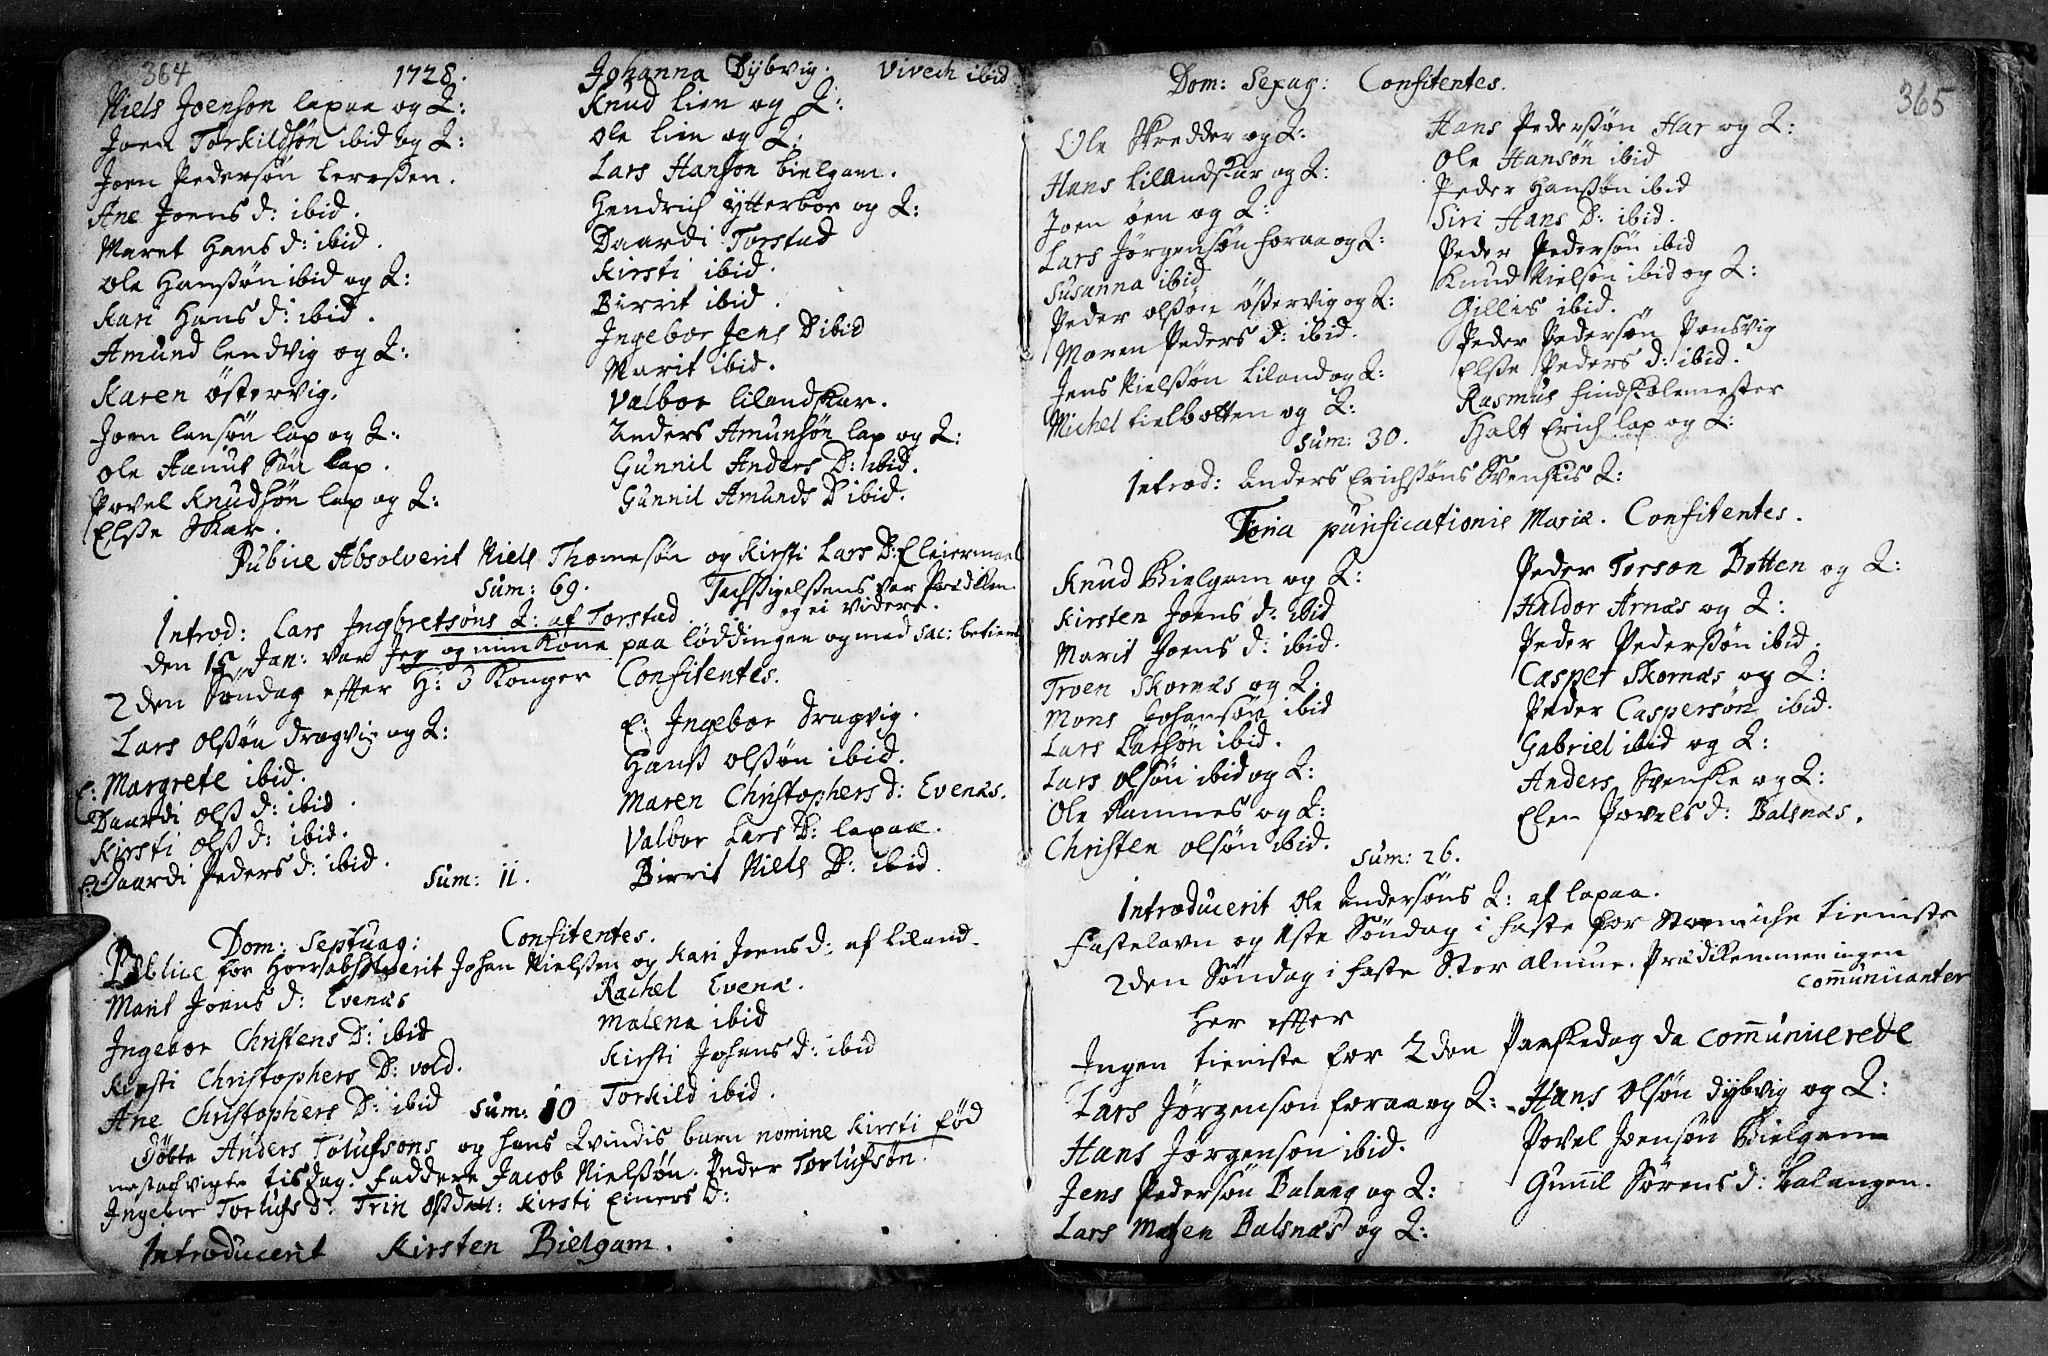 364
1728.
Niels Joenson lapaa og Q:
Joen Torkildsøn ibid og Q:
Joen Pedersøn Lerossen.
Ane Joens d: ibid.
Maret Hans d: ibid.
Ole Hanssøn ibid og Q:
Kari Hans d: ibid.
Amund Lendvig og Q:
Karen Østervig.
Joen Lensøn lap og Q:
Ole Aanus Søn Lap.
Povel Knudsøn lap og Q:
Elsse Skar.
Johanna Dybvig. Vivech ibid
Knud Lien og Q:
Ole Lien og Q:
Lars Hanson Bielgam.
Hendrich Ytterboe og Q:
Daardi Torstad
Kirsti ibid.
Birrit ibid.
Ingebor Jens D ibid
Marit ibid.
Valbor Lilandskar.
Anders Amunsøn lap og Q:
Gunnil Anders D: ibid.
Gunnil Amunds D ibid.
Publice Absolverit Niels Thomesøn og Kirsti Lars D: Eleiermaal
Sum: 69.
Introd: Lars Ingbretsøns Q: af Torstad.
og ei videre.
den 15 Jan: var Jeg og min Kone paa Løddingen og med Sac: betient
2 den Søndag effter H: 3 Konger Confitentes.
Lars Olssøn Dragvig og Q:
E: Margrete ibid.
Daardi Olss d: ibid.
Kirsti Olss d: ibid.
E: Daardi Peders d: ibid.
Sum: 11.
E: Ingebor Dragvig.
Hanss Olssøn ibid.
Maren Christophers d: Evenæs.
Valbor Lars D: lapaa.
Birrit Niels D: ibid.
Dom: Septuag: Confitentes.
Publice for Hoer absolverit Johan Nielssen og Kari Joens d: af Liland.
Marit Joens d: Evenæs
Ingebor Christens D: ibid
Kirsti Christophers D: vold.
Ane Christophers D: ibid
Sum: 10
Rachel Evenæ.
Malena ibid
Kirsti Johans d: ibid
Torkild ibid.
Døbte Anders Tolufsons og hans Qvindis barn nomine Kirsti fød
nestafvigte tisdag. Faddere Jacob Nielssøn. Peder Torlufsøn.
Ingebor Torlufs d. Trin Olssdat: Kirsti Einers d:
Introducerit Kirsten Bielgam.
365
Dom: Sexag: Confitentes.
Ole Skredder og Q:
Hans Lilandskar og Q:
Joen Øen og Q:
Lars Jørgensøn Foraa og Q:
Susanna ibid
Peder Olssøn Østervig og Q:
Maren Peders d: ibid.
Jens Nielssøn Liland og Q:
Michel Fielbotten og Q:
Sum: 30.
Hans Pederssøn Har og Q:
Ole Hansøn ibid
Peder Hanssøn ibid
Siri Hans D: ibid.
Peder Pedersøn ibid
Knud Nielsøn ibid og Q:
Gillis ibid.
Peder Pedersøn Ponsvig
Elsse Peders d: ibid.
Rasmus Findskolemester
Halt Erich lap og Q:
Introd: Anders Erichssøns Svenskis Q:
Feria purificationis Mariæ. Confitentes.
Knud Bielgam og Q:
Kirsten Joens d. ibid
Marit Joens d: ibid.
Troen Skornæs og Q:
Mons Johansøn ibid
Lars Larsøn ibid.
Lars Olsøn ibid og Q:
Ole Ramnes og Q:
Christen Olsøn ibid.
Sum: 26.
Peder Torson Botten og Q:
Haldor Arnæs og Q:
Peder Pederssøn ibid.
Casper Skornæs og Q:
Peder Caspersøn ibid.
Gabriel ibid og Q:
Anders Svenske og Q:
Elen Povels d: Balsnæs.
Introducerit Ole Andersøns Q: af lapaa.
Fastelavn og 1ste Søndag i Faste for Storm iche tieniste
2den Søndag i Faste Stor almue. Prædiken men ingen
communicanter
Her effter
Ingen tieniste for 2 den Paaskedag da communicerede
Lars Jørgenson Foraa og Q:
Hans Jørgenson ibid.
Jens Pedersøn Balang og Q:
Lars Balsnæs og Q:
Hans Olsøn Dybvig og Q:
Povel Joensøn Bielgam
Gunnil Sørens d: Balangen.